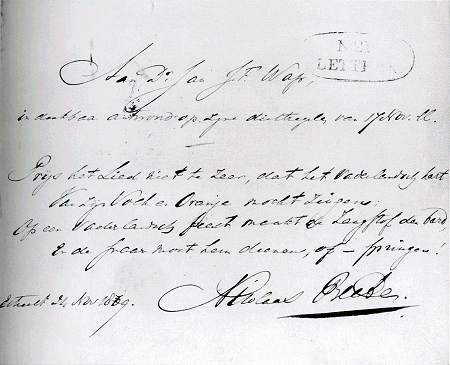 Aan Dr. Jan J.F. Wap,
in dankbaar antwoord op zyne dichtregelen van 17 Nov. ll.
Prijs het Lied niet te zeer, dat het Vaderlandsch hart
Van zijn Volk en Oranje mocht zingen;
Op een Vaderlandsch feest maakt de Zangstof den Bard,
En de snaar moet hem dienen, of – springen!
Utrecht 24 Nov. 1869. Nicolaas Beets.